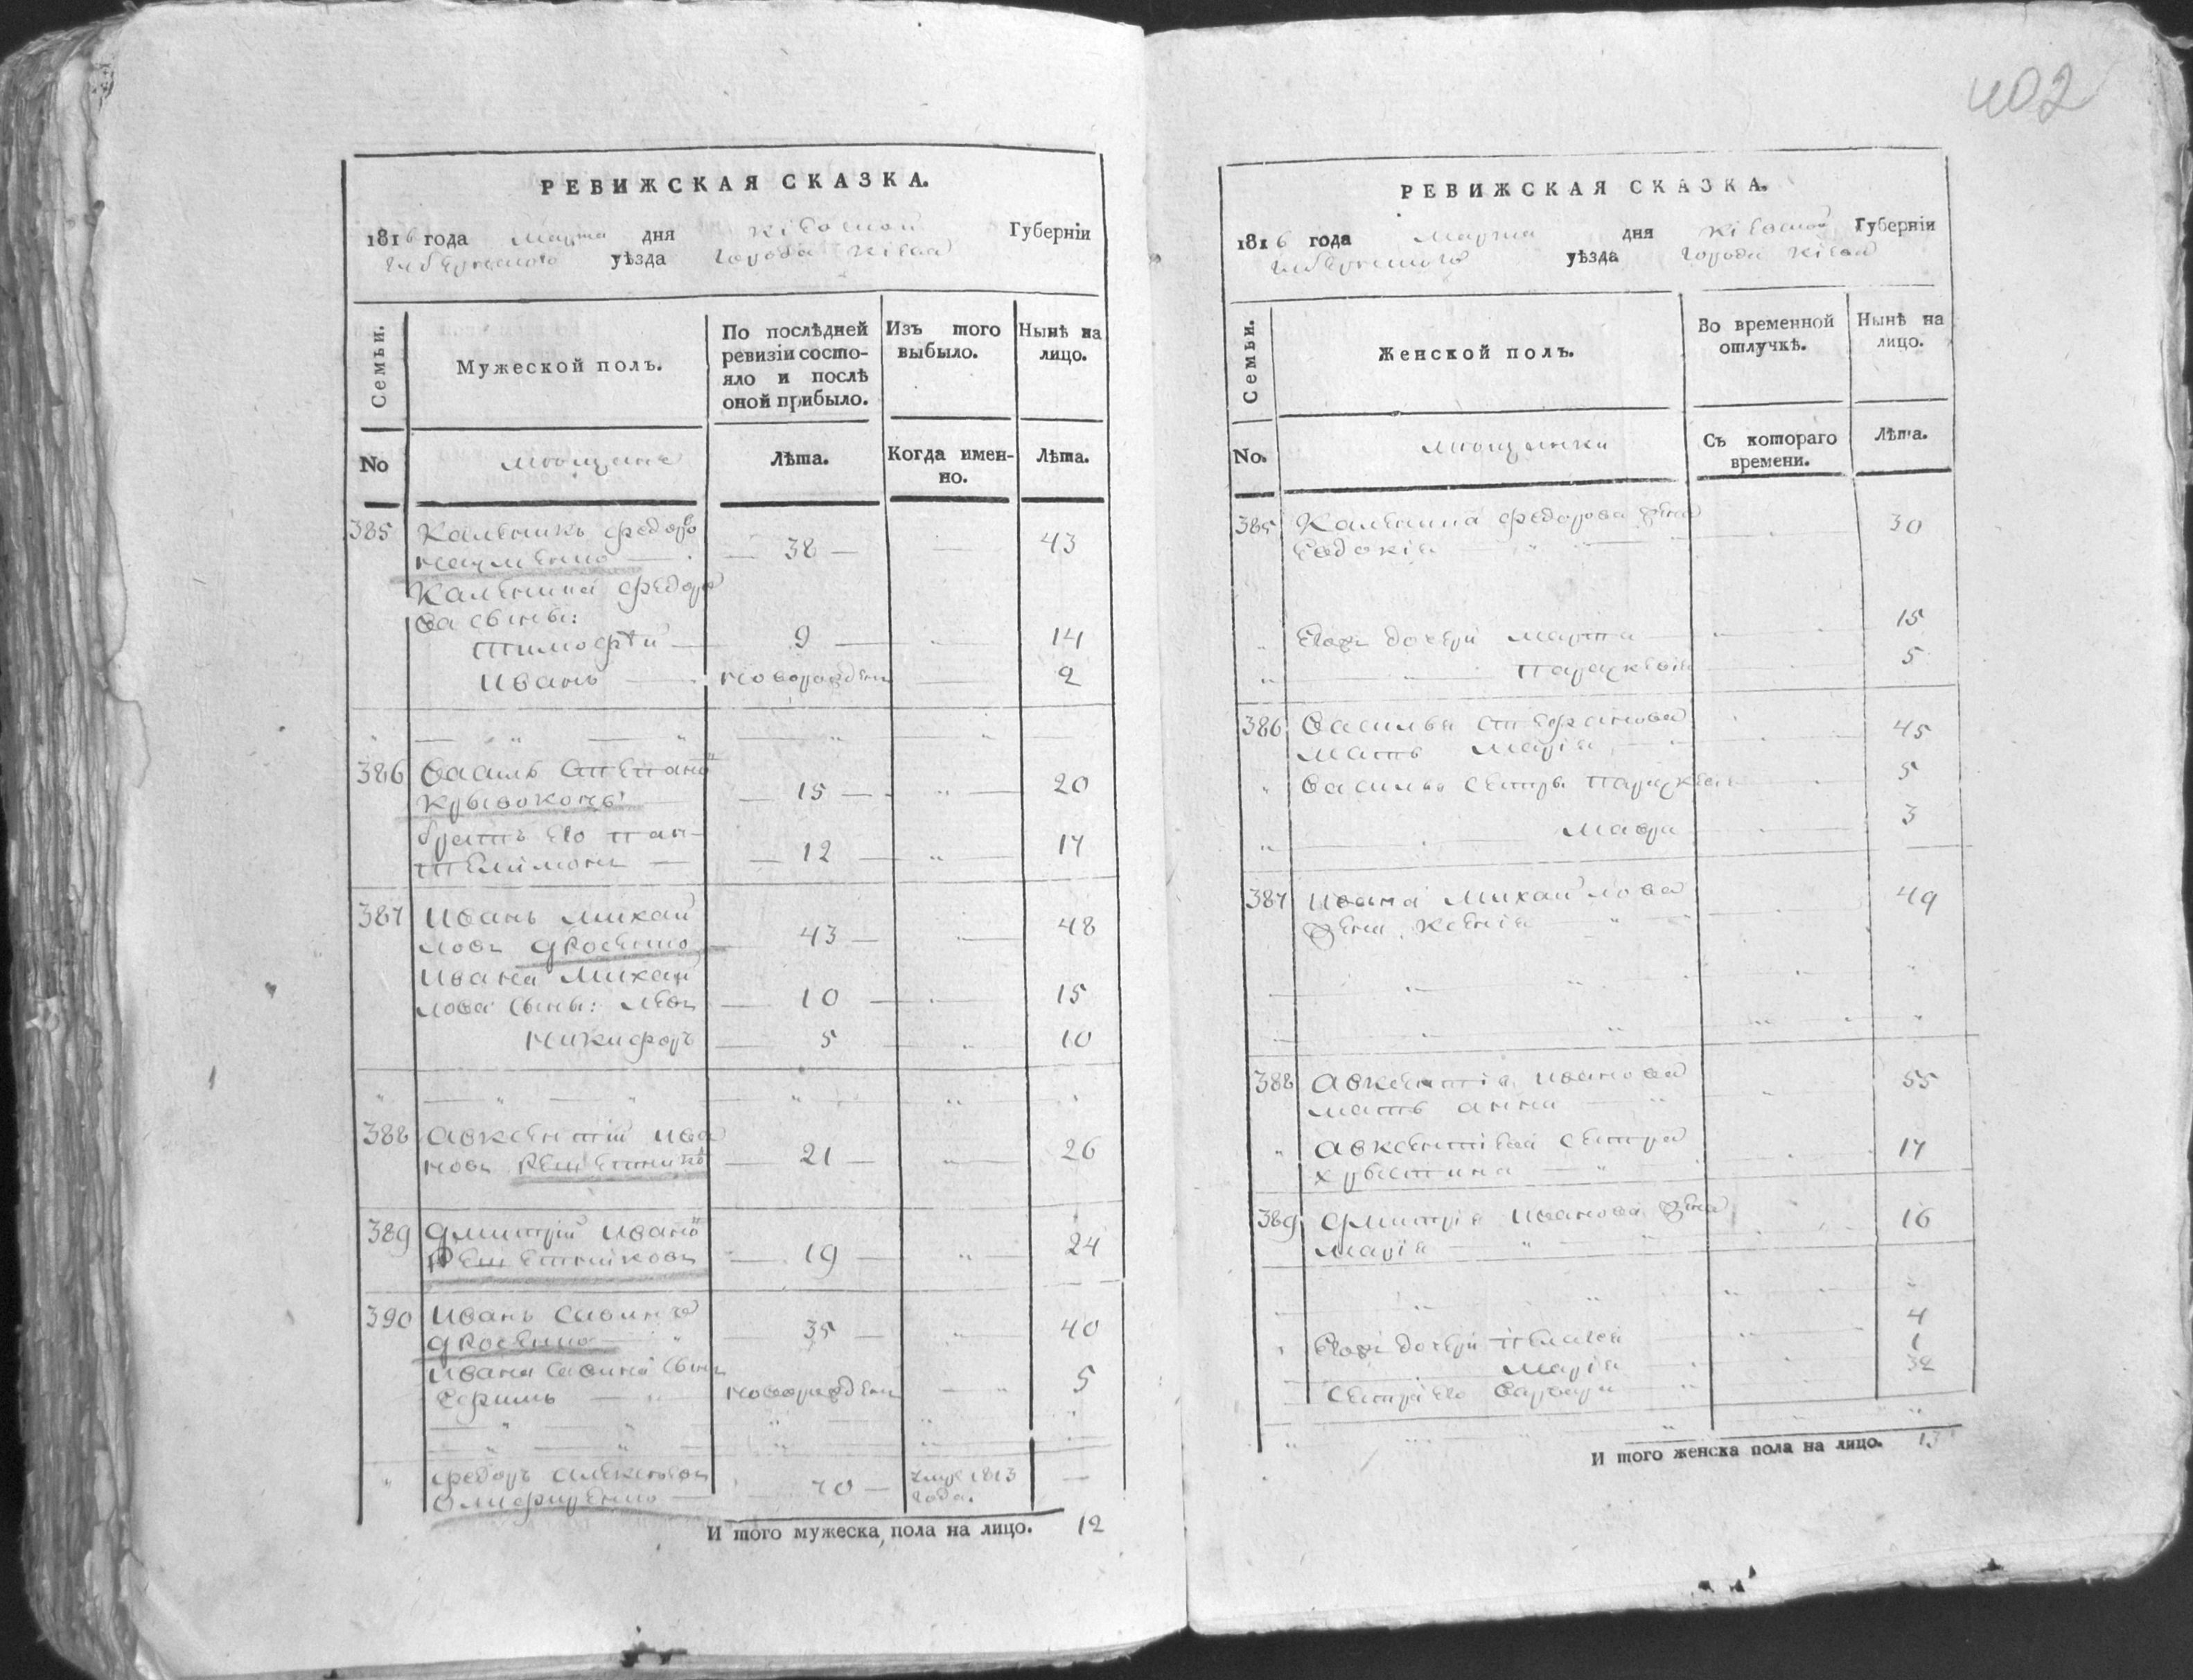 402
РЕВИЖСКАЯ СКАЗКА.
1816 года Марта дня Кіевской Губерніи
уѣзда города Кіева
Семьи.
Мужеской полъ.
По послѣдней ревизіи состо-
яло и послѣ
оной прибыло.
Изъ того выбыло.
Нынѣ на лицо.
No
мещане
Лѣта.
Когда имен-
но.
Лѣта.
385 Каленикъ Федоро
Науменко 38 43
Каленика Федоро
ва сыны:
Тимофѣй 9 14
Иванъ новорожденъ 2
386 Василь Степано
15 20
братъ его Пан-
телимонъ 12 17
387 Иванъ Михай
ловъ 43 48
Ивана Михай
лова сыны: Левъ 10 15
Никифоръ 5 10
388 Авксентій Ива
новъ 21 26
389 Дмитрій Ивано
Решетниковъ 19 24
390 Иванъ Савинъ
35 40
Ивана Савина сынъ
Ефимъ новорожденъ 5
Федоръ Алексѣевъ
70 1813
года.
И того мужеска пола на лицо. 12
РЕВИЖСКАЯ СКАЗКА.
1816 года Марта дня Кіевской Губерніи
уѣзда города Кіева
Семьи.
Женской полъ.
Во временной
отлучкѣ.
Нынѣ на
лицо.
No.
мещанки
Съ котораго
времени.
Лѣта.
385 Каленика Федорова жена
Евдокія 30
дочери Марта 15
Параскевія 5
386 Василья Стефанова
мать Марія 45
Василья сестры Параскевія 5
Мавра 3
387 Ивана Михайлова
жена Ксенія 49
388 Авксентія Иванова
мать Анна 55
Авксентіева сестра
Хрыстина 17
389 Дмитрія Иванова жена
Марія 16
дочери Пелагея 4
Марія 1
Сестра его Варвара 32
И того женска пола на лицо. 13